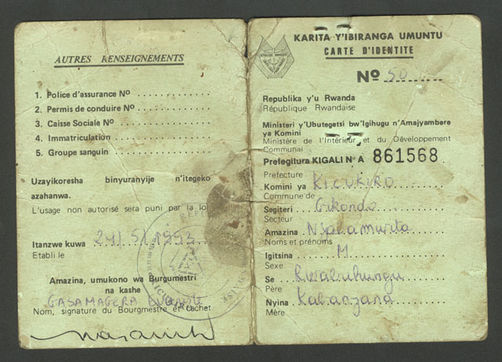 AUTRES RENSEIGNEMENTS
1. Police d'assurance Nº
2. Permis de conduire Nº
3. Caisse Sociale Nº
4. Immatriculation
5. Groupe sanguin
Uzayikoresha binyuranyije n'itegeko
azahanwa.
L'usage non autorisé sera puni par la loi
Itanzwe kuwa
Etabli le
Amazina, umukono wa Burgumestri
na kashe
GASAMAGERA
Nom, signature du Bourgmestre et cachet
KARITA Y'IBIRANGA UMUNTU
CARTE D'IDENTITE
Nº
Republika y'u Rwanda
République Rwandaise
Ministeri y'Ubutegetsi bw'Igihugu n'Amajyambere
ya Komini
Ministère de l'Intérieur et du Développement
Communal
Prefegitura KIGALI Nº A 861568
Prefecture
Komini ya KICUKIRO
Commune de
Segiteri Gikondo
Secteur
Amazina
Noms et prénoms
Igitsina M
Sexe
Se
Père
Nyina
Mère